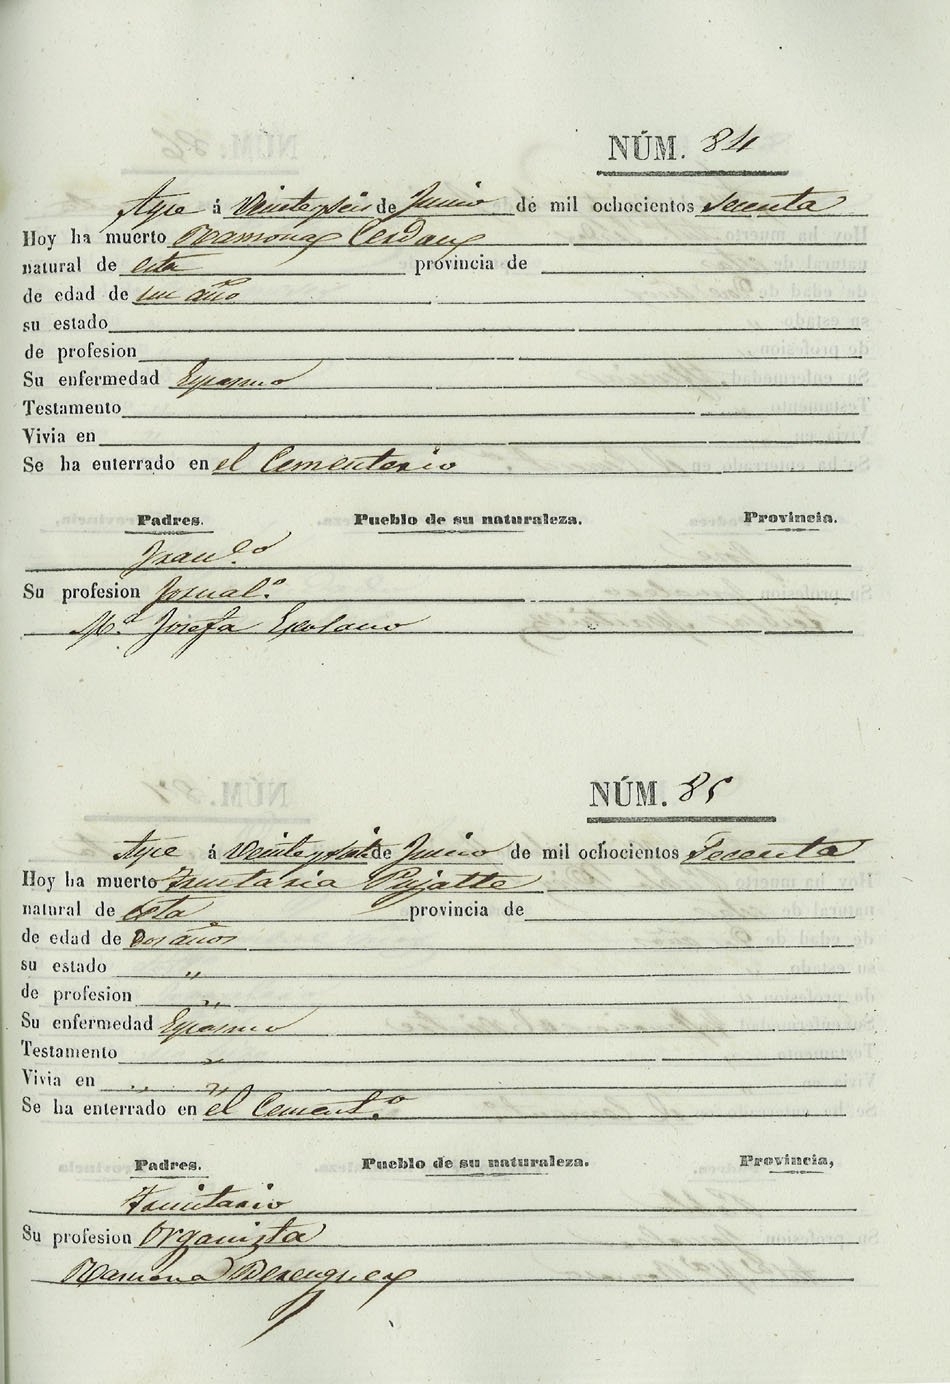 NÚM. 84
Aspe á Veinte y seis de Junio de mil ochocientos secenta
Hoy ha muerto Ramona Cerdan
natural de esta provincia de
de edad de un año
su estado
de profesion
Su enfermedad Espasmo
Testamento
Vivia en
Se ha enterrado en el Cementerio
Padres. Pueblo de su naturaleza. Provincia.
Franco.
Su profesion Jornal.o
M.a Josefa Escolano
NÚM. 85
Aspe á Veinte y siete de Junio de mil ochocientos Secenta
Hoy ha muerto Trinitaria Pujalte
natural de esta provincia de
de edad de Dos años
su estado "
de profesion "
Su enfermedad Espasmo
Testamento "
Vivia en " "
Se ha enterrado en el Cement.o
Padres. Pueblo de su naturaleza. Provincia,
Trinitario
Su profesion Organista
Ramona Berenguer